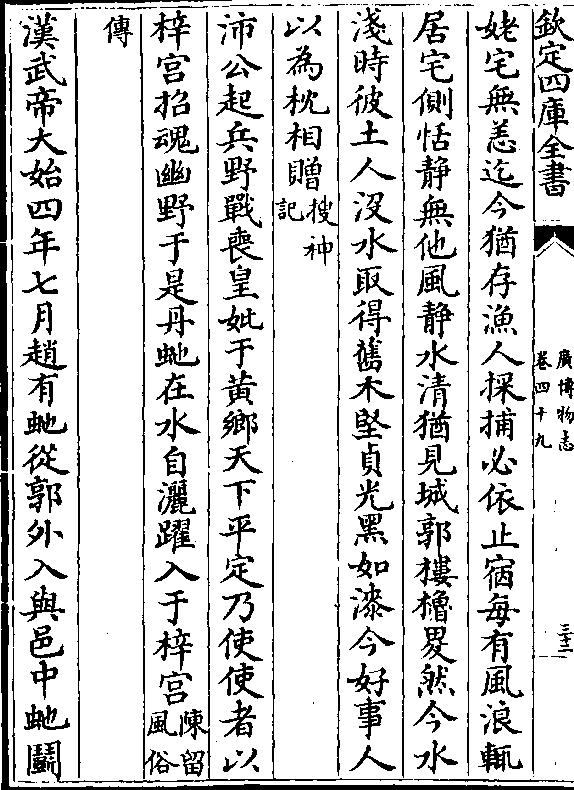 欽定四庫全書
廣博物志
卷四十九
三十二
姥宅無恙迄今猶存漁人採捕必依止宿每有風浪輒
居宅側恬靜無他風静水清猶見城郭樓櫓畟然今水
淺時彼土人沒水取得舊木堅貞光黑如漆今好事人
以為枕相贈搜神記
沛公起兵野戰喪皇妣于黃鄉天下平定乃使使者以
梓宮招魂幽野于是丹虵在水自灑躍入于梓宮陳留風俗
傳
漢武帝大始四年七月趙有虵從郭外入與邑中虵鬬